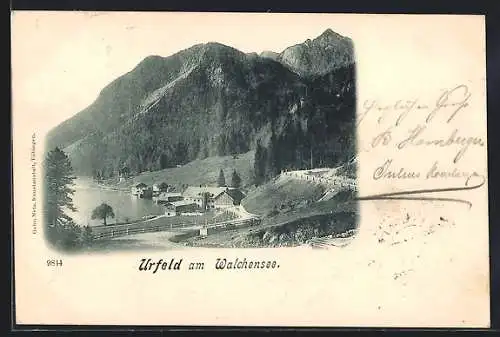 Gebr. Metz, Kunstanstalt, Tübingen.
9814
Urfeld am Walchensee.
Herzlichen Gruß
R. Hamberger
Julius